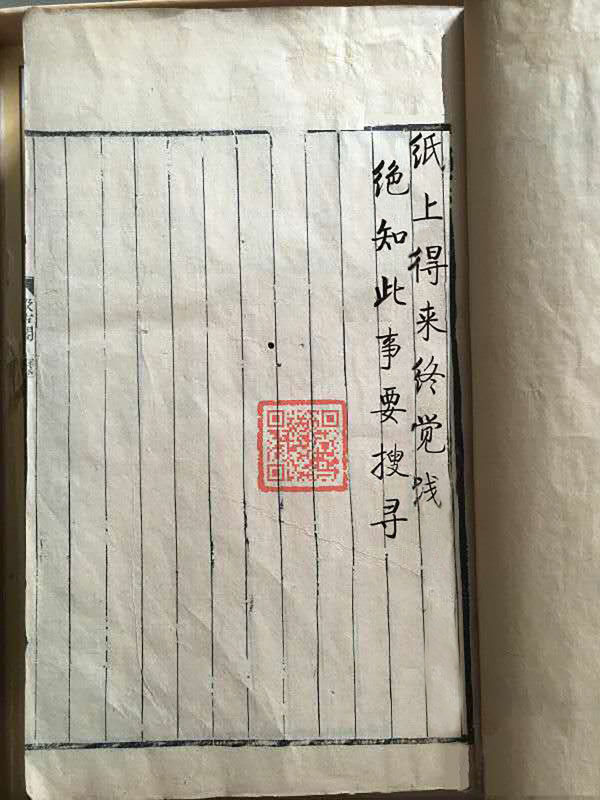 纸上得来终觉浅
绝知此事要搜寻